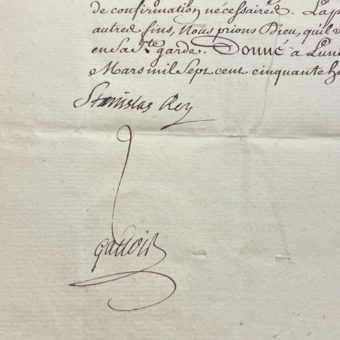 de confirmation necessaires. Lap
autres fins, Nous prions Dieu, qu'il v
en sa S.te garde. Donné à Luné
e Mars mil Sept cent cinquante h
Stanislas Roy
galloir